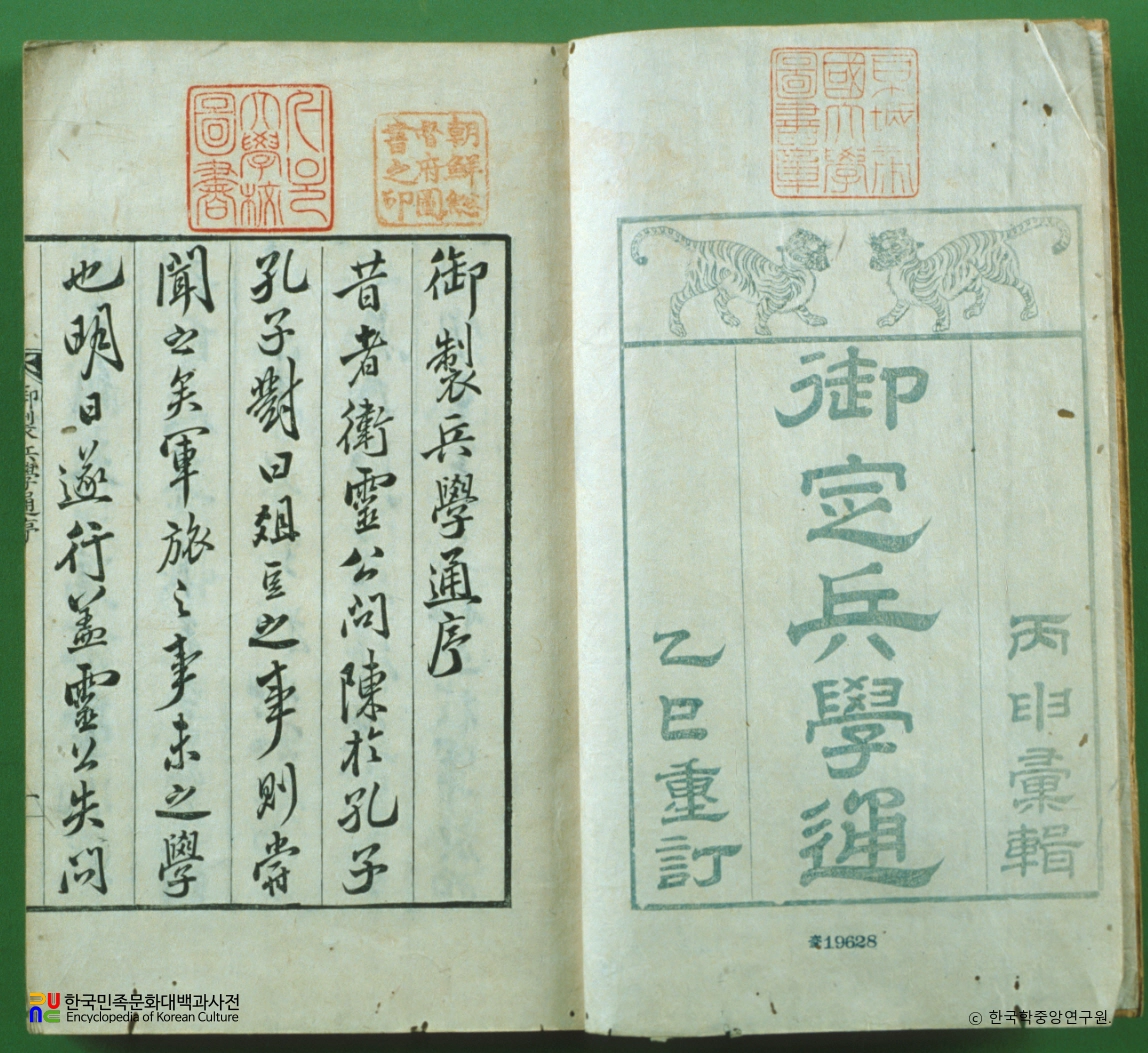 京城帝
國大學
圖書章
丙申彙輯
御定兵學通
乙巳重訂
奎19628
朝鮮總
督府圖
書之印
서울
大學校
圖書
御製兵學通序
昔者衛靈公問陳於孔子
孔子對曰俎豆之事則嘗
聞之矣軍旅之事未之學
也明日遂行盖靈公失問
御製兵學通序
一
한국민족문화대백과사전
Encyclopedia of Korean Culture
ⓒ 한국학중앙연구원.